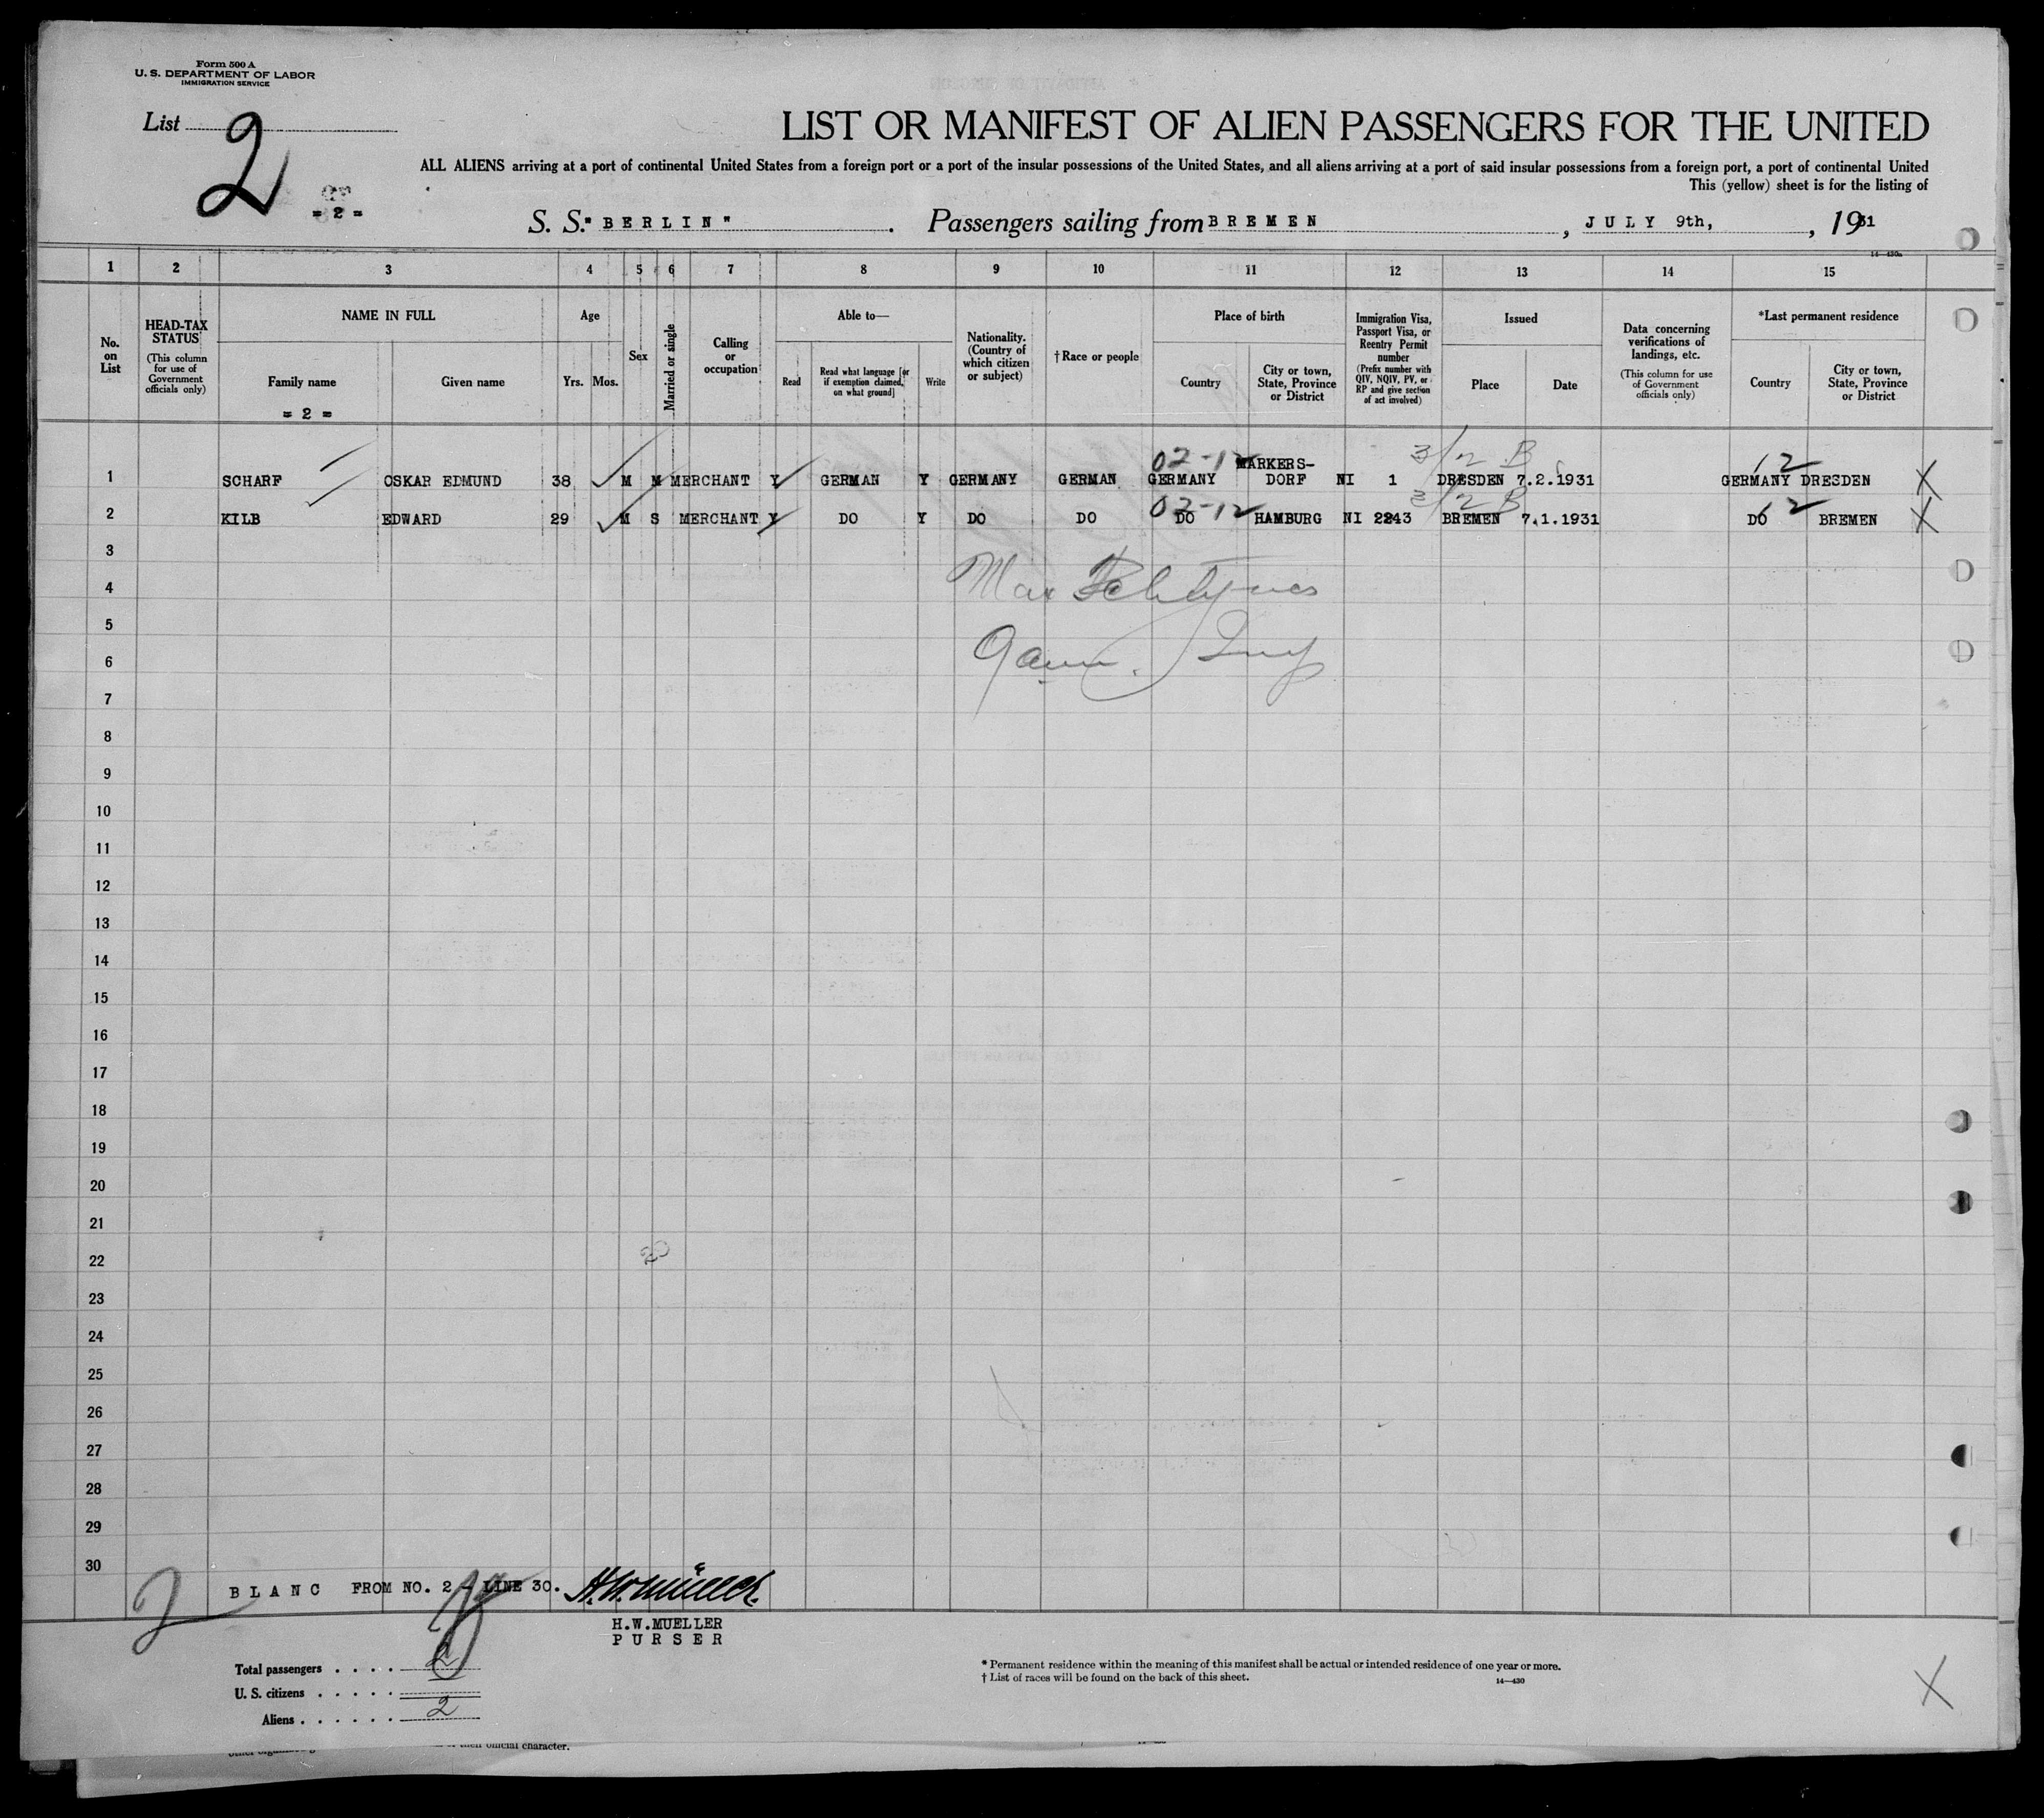 Form 500 A
U. S. DEPARTMENT OF LABOR
IMMIGRATION SERVICE
List 2
= 2 =
LIST OR MANIFEST OF ALIEN PASSENGERS FOR THE UNITED
ALL ALIENS arriving at a port of continental United States from a foreign port or a port of the insular possessions of the United States, and all aliens arriving at a port of said insular possessions from a foreign port, a port of continental United
This (yellow) sheet is for the listing of
S. S. "BERLIN". Passengers sailing from BREMEN, JULY 9th, 1931
14—430a
1 2 3 4 5 6 7 8 9 10 11 12 13 14 15
No. on List
HEAD-TAX STATUS
(This column for use of Government officials only)
NAME IN FULL
Family name
= 2 =
Given name
Age
Yrs. Mos.
Sex
Married or single
Calling or occupation
Able to—
Read
Read what language [or if exemption claimed, on what ground]
Write
Nationality. (Country of which citizen or subject)
†Race or people
Place of birth
Country
City or town, State, Province or District
Immigration Visa, Passport Visa, or Reentry Permit number
(Prefix number with QIV, NQIV, PV, or RP and give section of act involved)
Issued
Place
Date
Data concerning verifications of landings, etc.
(This column for use of Government officials only)
*Last permanent residence
Country
City or town, State, Province or District
02-12 3/2 B 12
1 SCHARF OSKAR EDMUND 38 M M MERCHANT Y GERMAN Y GERMANY GERMAN GERMANY MARKERS-DORF NI 1 DRESDEN 7.2.1931 GERMANY DRESDEN X
02-12 3/2 B 12
2 KILB EDWARD 29 M S MERCHANT Y DO Y DO DO DO HAMBURG NI 2243 BREMEN 7.1.1931 DO BREMEN X
3
4 Max
5
6
7
8
9
10
11
12
13
14
15
16
17
18
19
20
21
22
23
24
25
26
27
28
29
30
2 BLANC FROM NO. 2 - LINE 30. H.W.Müller.
H.W.MUELLER
PURSER
Total passengers . . . . 2
U. S. citizens . . . . .
Aliens . . . . . . 2
* Permanent residence within the meaning of this manifest shall be actual or intended residence of one year or more.
† List of races will be found on the back of this sheet.
14—430
X
their official character.